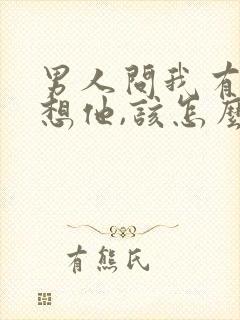 男人問我有
想他,該怎麼
有熊氏